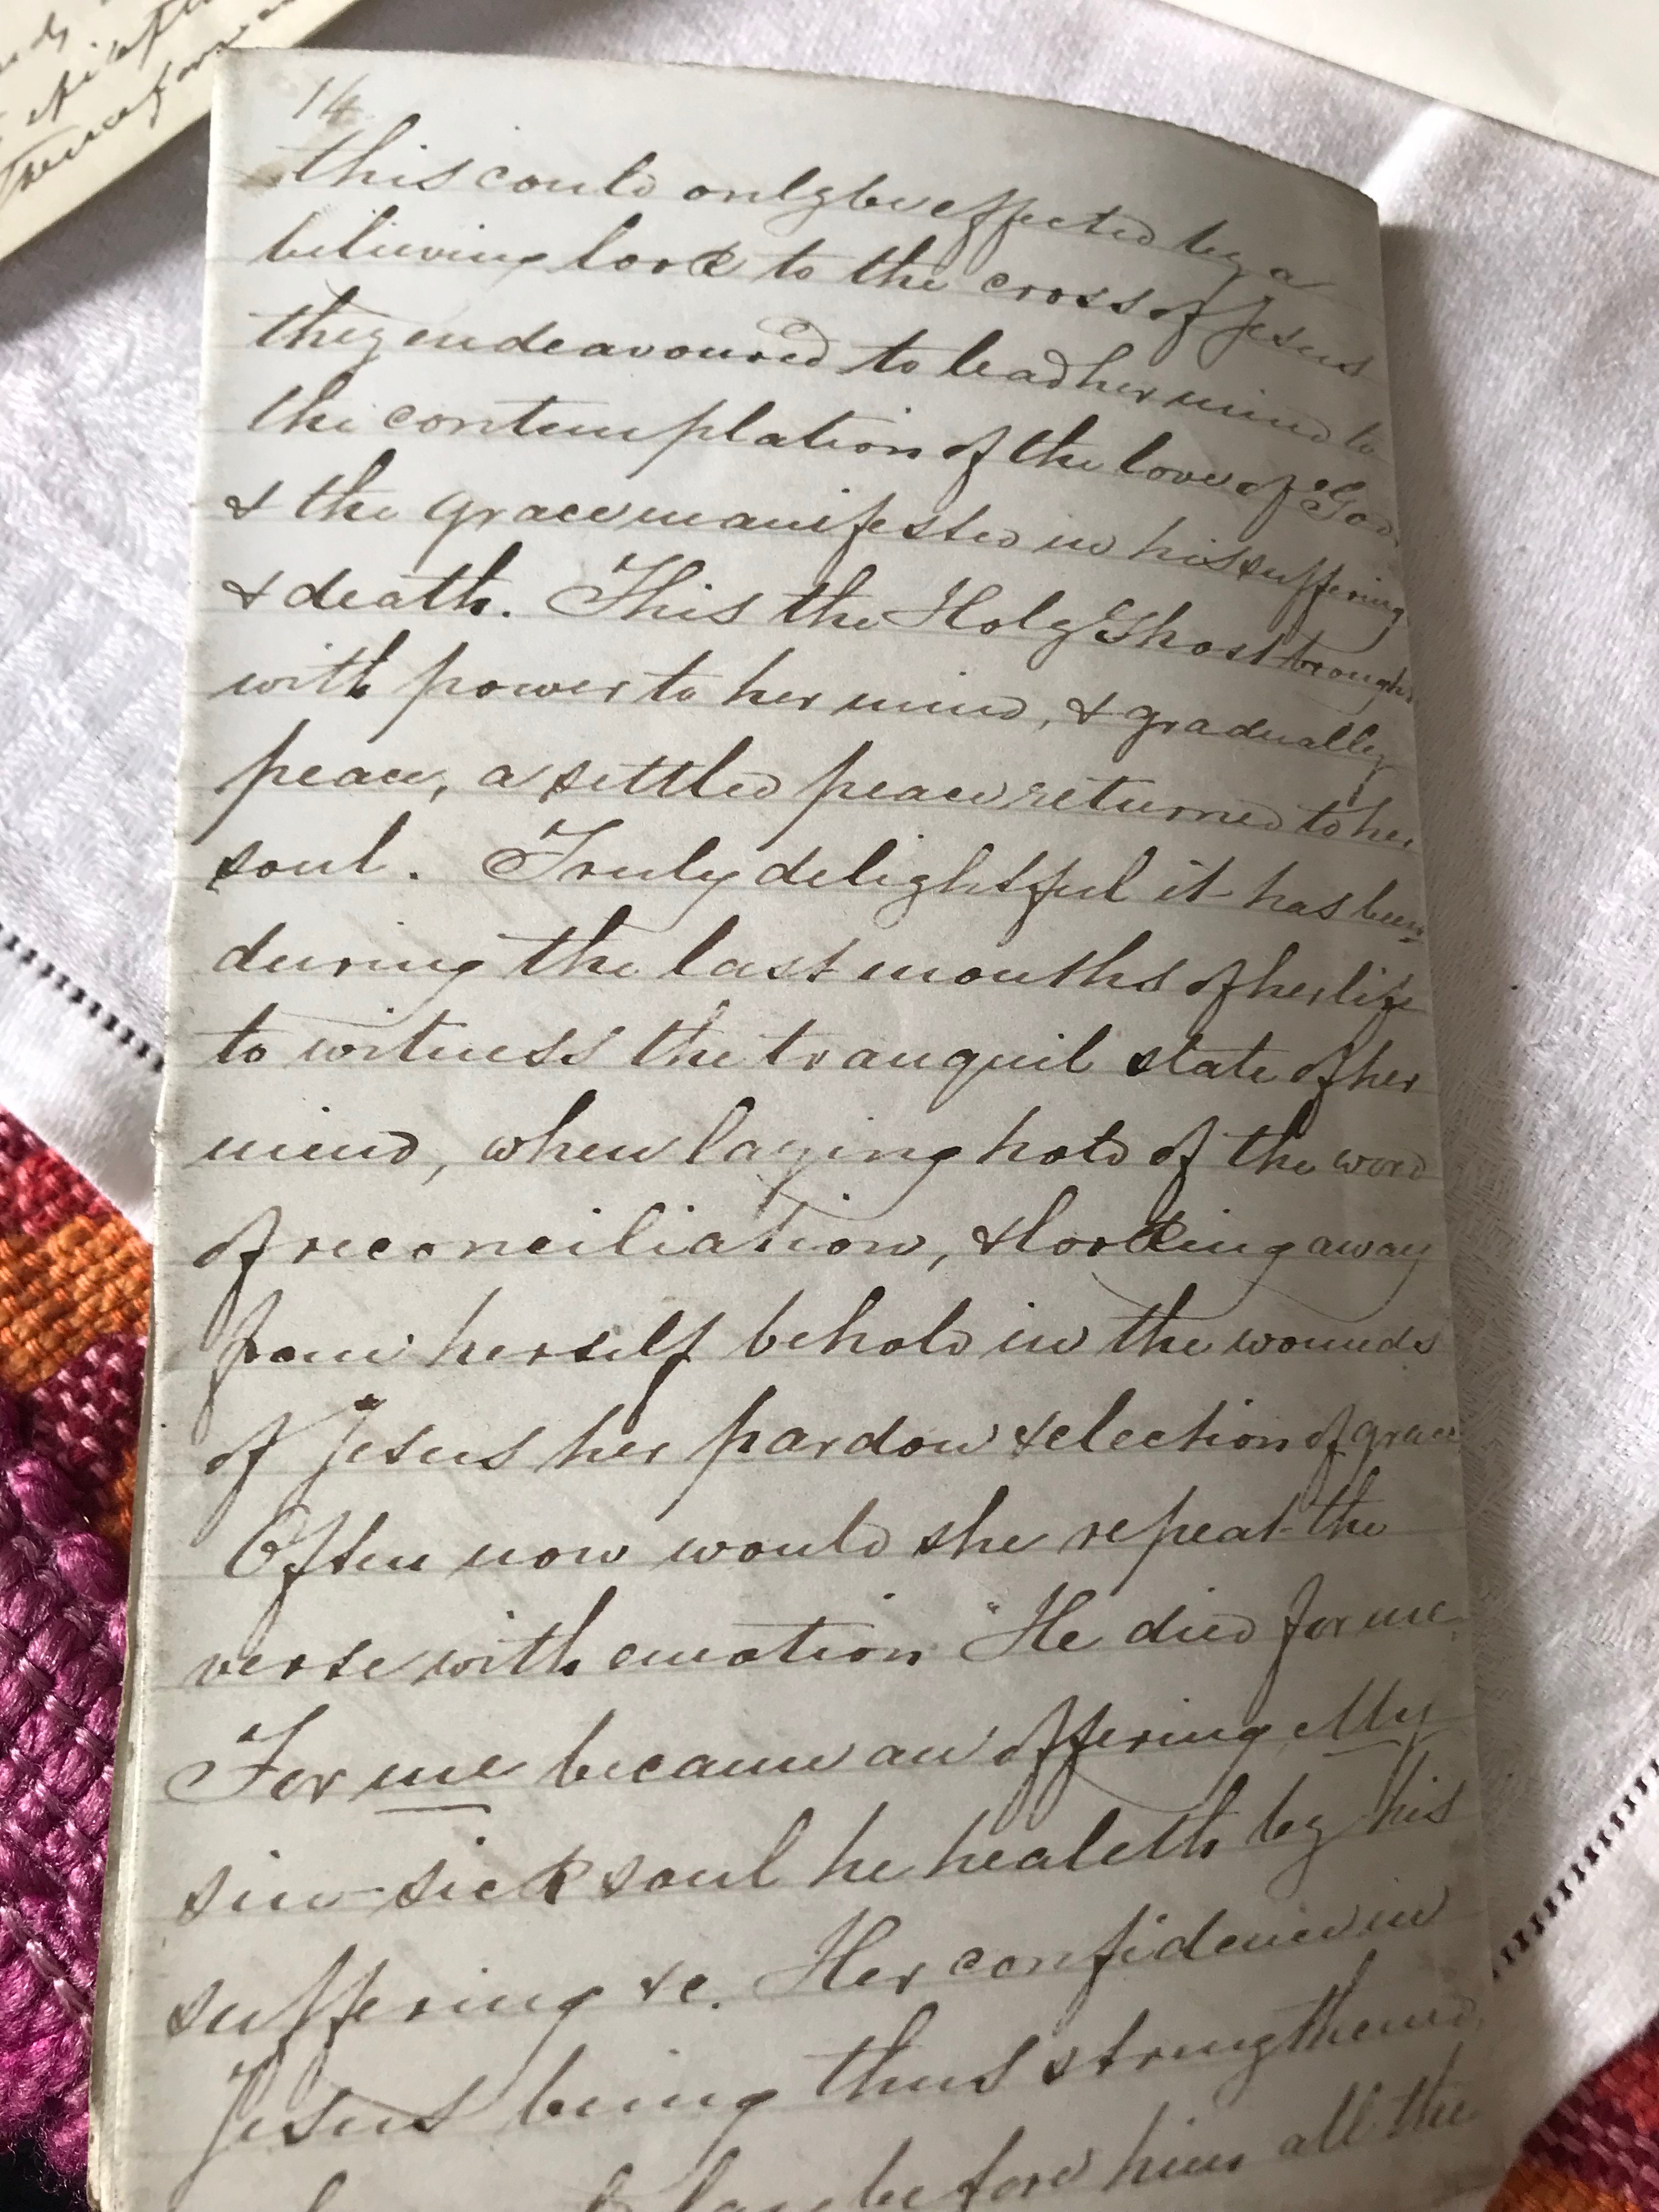 14
this could only be effected by a
believing look to the cross of Jesus
they endeavoured to lead her mind to
the contemplation of the love of God
& the grace manifested in his suffering
& death. This the Holy Ghost brought
with power to her mind, & gradually
peace, a settled peace returned to her
soul. Truly delightful it has been
during the last months of her life
to witness the tranquil state of her
mind, when laying hold of the word
of reconciliation, & looking away
from herself behold in the wounds
of Jesus her pardon & election of grace
Often now would she repeat the
verse with emotion "He died for me
For me became an offering My
sin-sick soul he healeth by his
suffering &c. Her confidence in
Jesus being thus strengthened,
lay before him all the